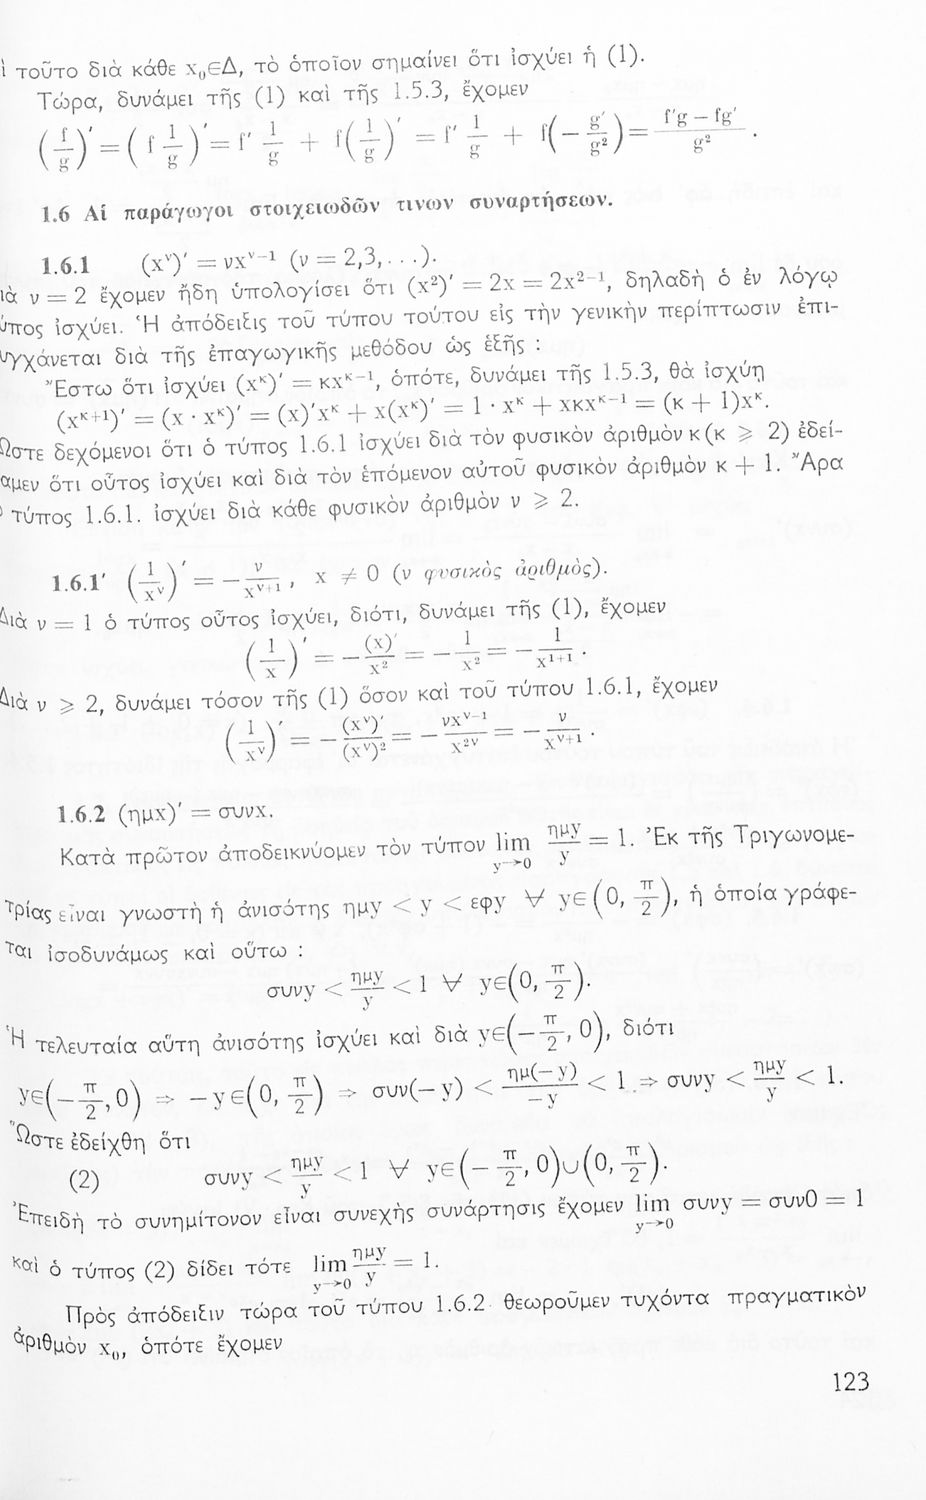 ὶ τοῦτο διὰ κάθε x₀∈Δ, τὸ ὁποῖον σημαίνει ὅτι ἰσχύει ἡ (1).
Τώρα, δυνάμει τῆς (1) καὶ τῆς 1.5.3, ἔχομεν
(f/g)′ = (f 1/g)′ = f′ 1/g + f(1/g)′ = f′ 1/g + f(− g′/g²) = (f′g − fg′)/g² .
1.6 Αἱ παράγωγοι στοιχειωδῶν τινων συναρτήσεων.
1.6.1 (xᵛ)′ = νxᵛ⁻¹ (ν = 2,3,. . .).
ιὰ ν = 2 ἔχομεν ἤδη ὑπολογίσει ὅτι (x²)′ = 2x = 2x²⁻¹, δηλαδὴ ὁ ἐν λόγῳ
ύπος ἰσχύει. Ἡ ἀπόδειξις τοῦ τύπου τούτου εἰς τὴν γενικὴν περίπτωσιν ἐπι-
υγχάνεται διὰ τῆς ἐπαγωγικῆς μεθόδου ὡς ἑξῆς :
Ἔστω ὅτι ἰσχύει (xᵏ)′ = κxᵏ⁻¹, ὁπότε, δυνάμει τῆς 1.5.3, θὰ ἰσχύῃ
(xᵏ⁺¹)′ = (x · xᵏ)′ = (x)′xᵏ + x(xᵏ)′ = 1 · xᵏ + xκxᵏ⁻¹ = (κ + 1)xᵏ.
Ὥστε δεχόμενοι ὅτι ὁ τύπος 1.6.1 ἰσχύει διὰ τὸν φυσικὸν ἀριθμὸν κ (κ ⩾ 2) ἐδεί-
αμεν ὅτι οὗτος ἰσχύει καὶ διὰ τὸν ἑπόμενον αὐτοῦ φυσικὸν ἀριθμὸν κ + 1. Ἄρα
τύπος 1.6.1. ἰσχύει διὰ κάθε φυσικὸν ἀριθμὸν ν ⩾ 2.
1.6.1′ (1/xᵛ)′ = − ν/xᵛ⁺¹ , x ≠ 0 (ν φυσικὸς ἀριθμὸς).
Διὰ ν = 1 ὁ τύπος οὗτος ἰσχύει, διότι, δυνάμει τῆς (1), ἔχομεν
(1/x)′ = − (x)′/x² = − 1/x² = − 1/x¹⁺¹ .
Διὰ ν ⩾ 2, δυνάμει τόσον τῆς (1) ὅσον καὶ τοῦ τύπου 1.6.1, ἔχομεν
(1/xᵛ)′ = − (xᵛ)′/(xᵛ)² = − νxᵛ⁻¹/x²ᵛ = − ν/xᵛ⁺¹ .
1.6.2 (ημx)′ = συνx.
Κατὰ πρῶτον ἀποδεικνύομεν τὸν τύπον lim y→0 ημy/y = 1. Ἐκ τῆς Τριγωνομε-
τρίας εἶναι γνωστὴ ἡ ἀνισότης ημy < y < εφy ∀ y∈(0, π/2), ἡ ὁποία γράφε-
ται ἰσοδυνάμως καὶ οὕτω :
συνy < ημy/y < 1 ∀ y∈(0, π/2).
Ἡ τελευταία αὕτη ἀνισότης ἰσχύει καὶ διὰ y∈(− π/2, 0), διότι
y∈(− π/2, 0) ⇒ −y∈(0, π/2) ⇒ συν(−y) < ημ(−y)/−y < 1 ⇒ συνy < ημy/y < 1.
Ὥστε ἐδείχθη ὅτι
(2) συνy < ημy/y < 1 ∀ y∈(− π/2, 0)∪(0, π/2).
Ἐπειδὴ τὸ συνημίτονον εἶναι συνεχὴς συνάρτησις ἔχομεν lim y→0 συνy = συν0 = 1
καὶ ὁ τύπος (2) δίδει τότε lim y→0 ημy/y = 1.
Πρὸς ἀπόδειξιν τώρα τοῦ τύπου 1.6.2 θεωροῦμεν τυχόντα πραγματικὸν
ἀριθμὸν x₀, ὁπότε ἔχομεν
123